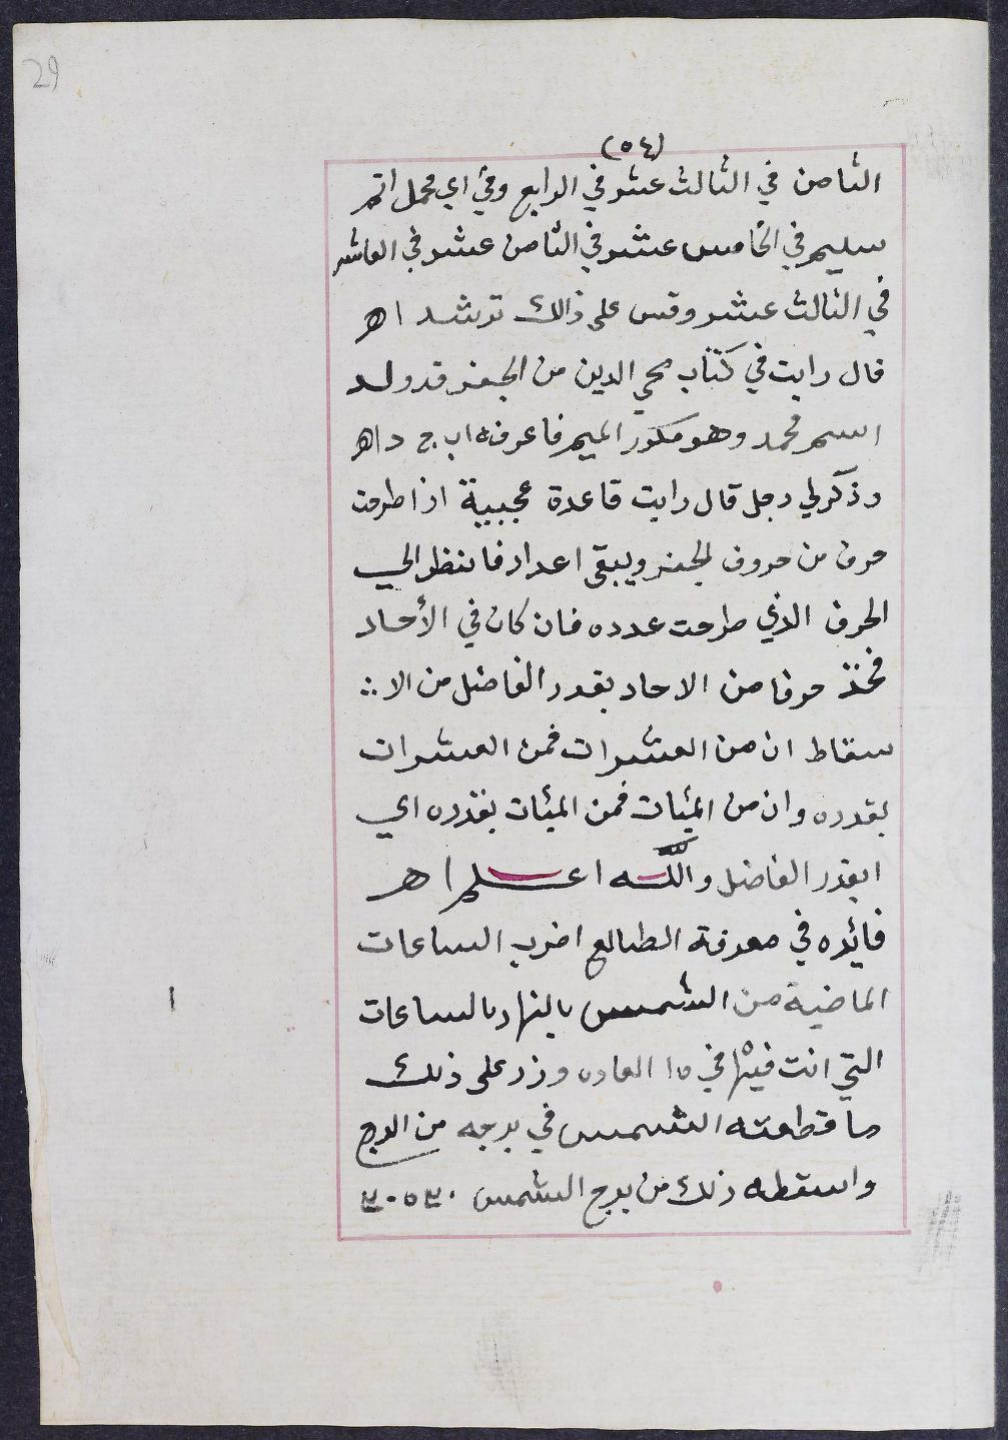 29
(٥٤)
الثامن في الثالث عشر في الرابع وفي اي محمل اتم
سليم في الخامس عشر في الثامن عشر في العاشر
في الثالث عشر وقس على ذالك ترشد اهـ
قال رايت في كتاب محي الدين من الجفر قد ولد
اسم محمد وهو مكور الميم فاعرفه اب ج د اهـ
وذكر لي رجل قال رايت قاعدة عجيبية اذا طرحت
حرف من حروف الجفر ويبقى اعداد فانظر الي
الحرف الذي طرحت عدده فان كان في الأحاد
فخذ حرفا من الاحاد بقدر الفاضل من الا
سقاط ان من العشرات فمن العشرات
بقدره وان من المئات فمن المئات بقدره اي
ابقدر الفاضل والله اعلم اهـ
فائده في معرفة الطالع اضرب الساعات
الماضية من الشمس بالنهار بالساعات
التي انت فيها في ١٥ العاده وزد على ذلك
ما قطعته الشمس في برجه من الدرج
واسقطه ذلك من برج الشمس ٣٠٥٣٠
١